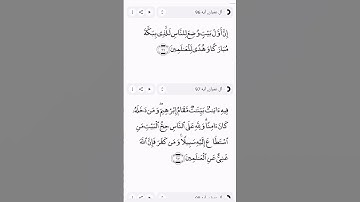 آل عمران آیه 96
إِنَّ أَوَّلَ بَيْتٍ وُضِعَ لِلنَّاسِ لَلَّذِي بِبَكَّةَ
مُبَارَكًا وَهُدًى لِّلْعَٰلَمِينَ ﴿٩٦﴾
آل عمران آیه 97
فِيهِ ءَايَٰتٌۢ بَيِّنَٰتٌ مَّقَامُ إِبْرَٰهِيمَ ۖ وَمَن دَخَلَهُۥ
كَانَ ءَامِنًا ۗ وَلِلَّهِ عَلَى النَّاسِ حِجُّ الْبَيْتِ مَنِ
اسْتَطَاعَ إِلَيْهِ سَبِيلًا ۚ وَمَن كَفَرَ فَإِنَّ اللَّهَ
غَنِيٌّ عَنِ الْعَٰلَمِينَ ﴿٩٧﴾